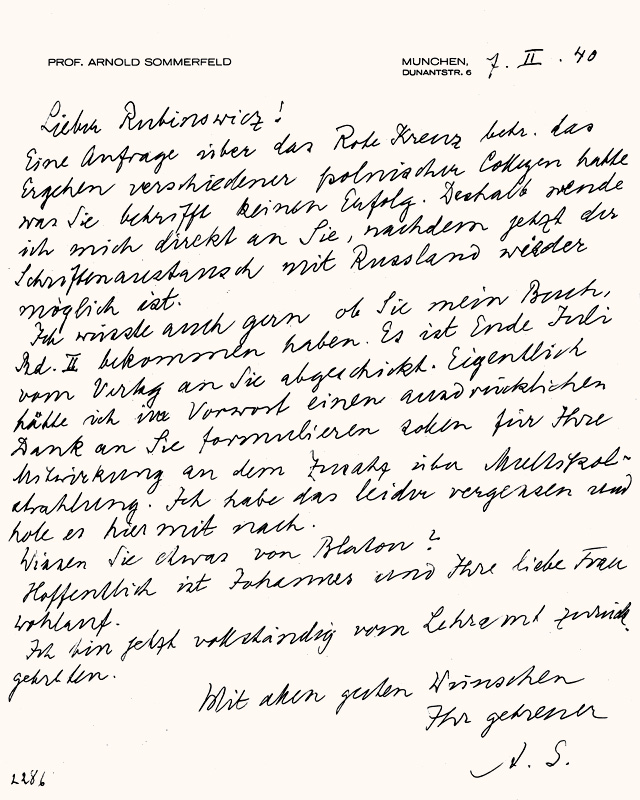 PROF. ARNOLD SOMMERFELD
MUNCHEN, 7. II. 40
DUNANTSTR. 6
Lieber Rubinowicz!
Eine Anfrage über das Rote Kreuz betr. das
Ergehen verschiedener polnischer Collegen hatte
was Sie betrifft keinen Erfolg. Deshalb wende
ich mich direkt an Sie, nachdem jetzt der
Schriftenaustausch mit Russland wieder
möglich ist.
Ich wüsste auch gern ob Sie mein Buch,
Bd. II bekommen haben. Es ist Ende Juli
vom Verlag an Sie abgeschickt. Eigentlich
hätte ich im Vorwort einen ausdrücklichen
Dank an Sie formulieren sollen für Ihre
Mitwirkung an dem Zusatz über Multipol-
strahlung. Ich habe das leider vergessen und
hole es hiermit nach.
Wissen Sie etwas von Blaton?
Hoffentlich ist Johannes und Ihre liebe Frau
wohlauf.
Ich bin jetzt vollständig vom Lehramt zurück
getreten.
Mit allen guten Wünschen
Ihr getreuer
A. S.
2286